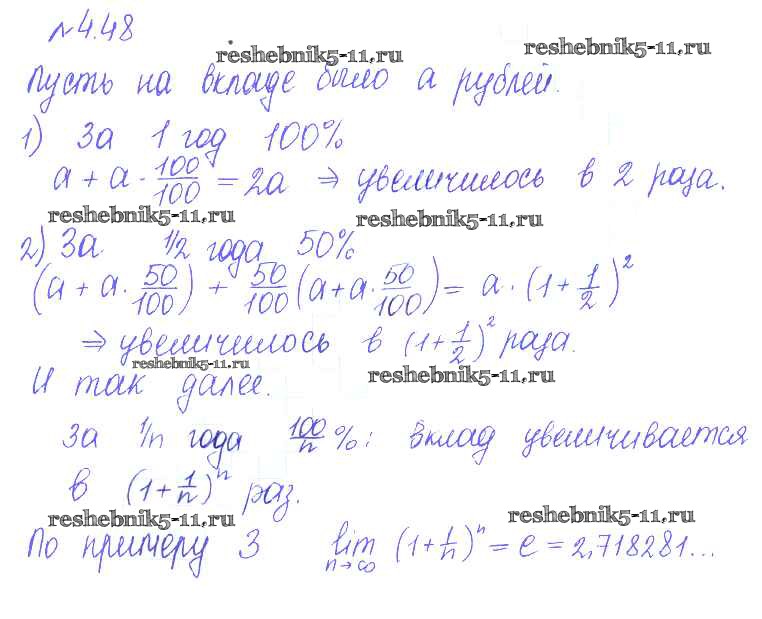 №4.48
reshebnik5-11.ru reshebnik5-11.ru
Пусть на вкладе было a рублей.
1) За 1 год 100%
a + a · 100/100 = 2a ⇒ увеличилось в 2 раза.
reshebnik5-11.ru reshebnik5-11.ru
2) За 1/2 года 50%
(a + a · 50/100) + 50/100 (a + a · 50/100) = a · (1 + 1/2)²
⇒ увеличилось в (1 + 1/2)² раза.
reshebnik5-11.ru reshebnik5-11.ru
И так далее.
за 1/n года 100/n %: вклад увеличивается
в (1 + 1/n)ⁿ раз.
reshebnik5-11.ru reshebnik5-11.ru
По примеру 3 lim n→∞ (1 + 1/n)ⁿ = e = 2,718281...